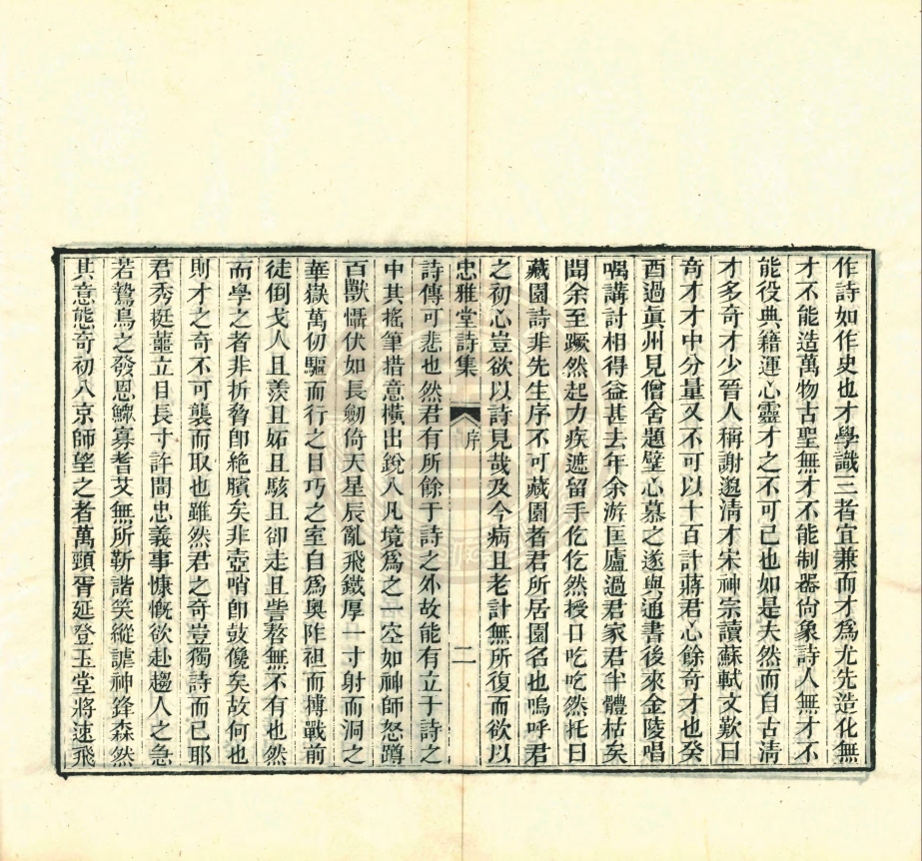 作詩如作史也才學識三者宜兼而才爲尤先造化無
才不能造萬物古聖無才不能制器尙象詩人無才不
能役典籍運心靈才之不可已也如是夫然而自古淸
才多奇才少晉人稱謝邈淸才宋神宗讀蘇軾文歎曰
奇才才中分量又不可以十百計蔣君心餘奇才也癸
酉過眞州見僧舍題壁心慕之遂與通書後來金陵唱
喁講討相得益甚去年余游匡廬過君家君半體枯矣
聞余至蹶然起力疾遮留手仡仡然授口吃吃然托曰
藏園詩非先生序不可藏園者君所居園名也嗚呼君
之初心豈欲以詩見哉及今病且老計無所復而欲以
忠雅堂詩集
序
二
詩傳可悲也然君有所餘于詩之外故能有立于詩之
中其搖筆措意橫出銳入凡境爲之一空如神師怒蹲
百獸懾伏如長劒倚天星辰亂飛鐵厚一寸射而洞之
華嶽萬仞驅而行之目巧之室自爲奧阼袒而搏戰前
徒倒戈人且羨且妬且駭且卻走且訾謷無不有也然
而學之者非折脅卽絶臏矣非壺哨卽鼓儳矣故何也
則才之奇不可襲而取也雖然君之奇豈獨詩而已耶
君秀挺薑立目長寸許聞忠義事慷慨欲赴趨人之急
若鷙鳥之發恩鰥寡耆艾無所靳諧笑縱謔神鋒森然
其意態奇初入京師望之者萬頸胥延登玉堂將速飛